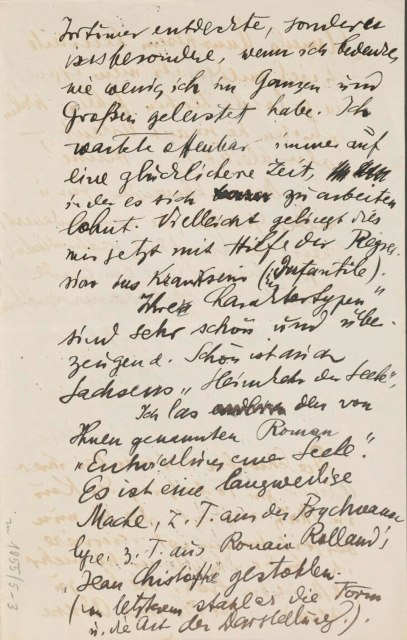 Irrtümer entdeckte, sondern
insbesondere, wenn ich bedenke,
wie wenig ich im Ganzen und
Großen geleistet habe. Ich
wartete offenbar immer auf
eine glücklichere Zeit,
in der es sich zu arbeiten
lohnt. Vielleicht gelingt dies
mir jetzt mit Hilfe der Regres-
sion ins Kranksein (Infantile).
Ihre „Charaktertypen"
sind sehr schön und über-
zeugend. Schön ist auch
Sachsens „Heimkehr der Seele",
Ich las den von
Ihnen genannten Roman
„Entwicklung einer Seele".
Es ist eine langweilige
Mache, z. T. aus der Psychoana-
lyse, z. T. aus Romain Rolland's
„Jean Christophe gestohlen.
(im letzteren stahl er die Form
u. die Art der Darstellung.).
1055/5-3